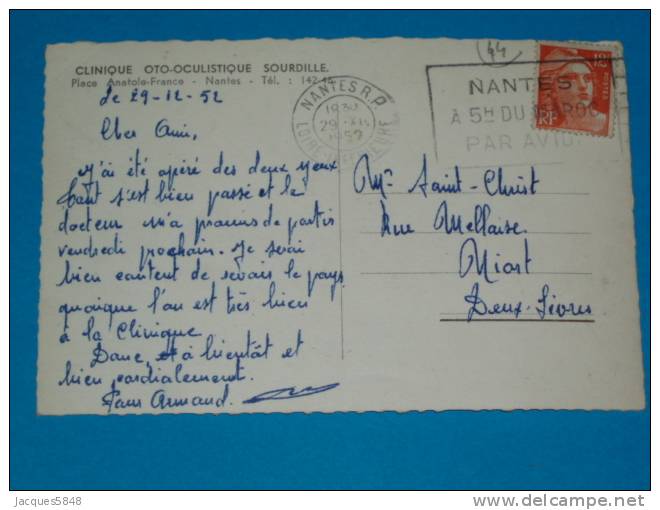 44
CLINIQUE OTO-OCULISTIQUE SOURDILLE.
Place Anatole-France - Nantes - Tél. : 142-
le 29-12-52
Cher Ami,
J'ai été opéré des deux yeux
tout s'est bien passé et le
docteur m'a promis de partir
vendredi prochain. Je serai
bien content de revoir le pays
quoique l'on est très bien
à la Clinique
Donc et à bientôt et
bien cordialement.
Armand.
NANTES R.P.
1930
29 -XII
1952
LOIRE INFERIEURE
NANTES
À 5H DU MAROC
PAR AVION
18F
RF
Mr Saint-Christ
Rue Mellaise
Niort
Deux-Sèvres
Jacques5848
delcampe.net